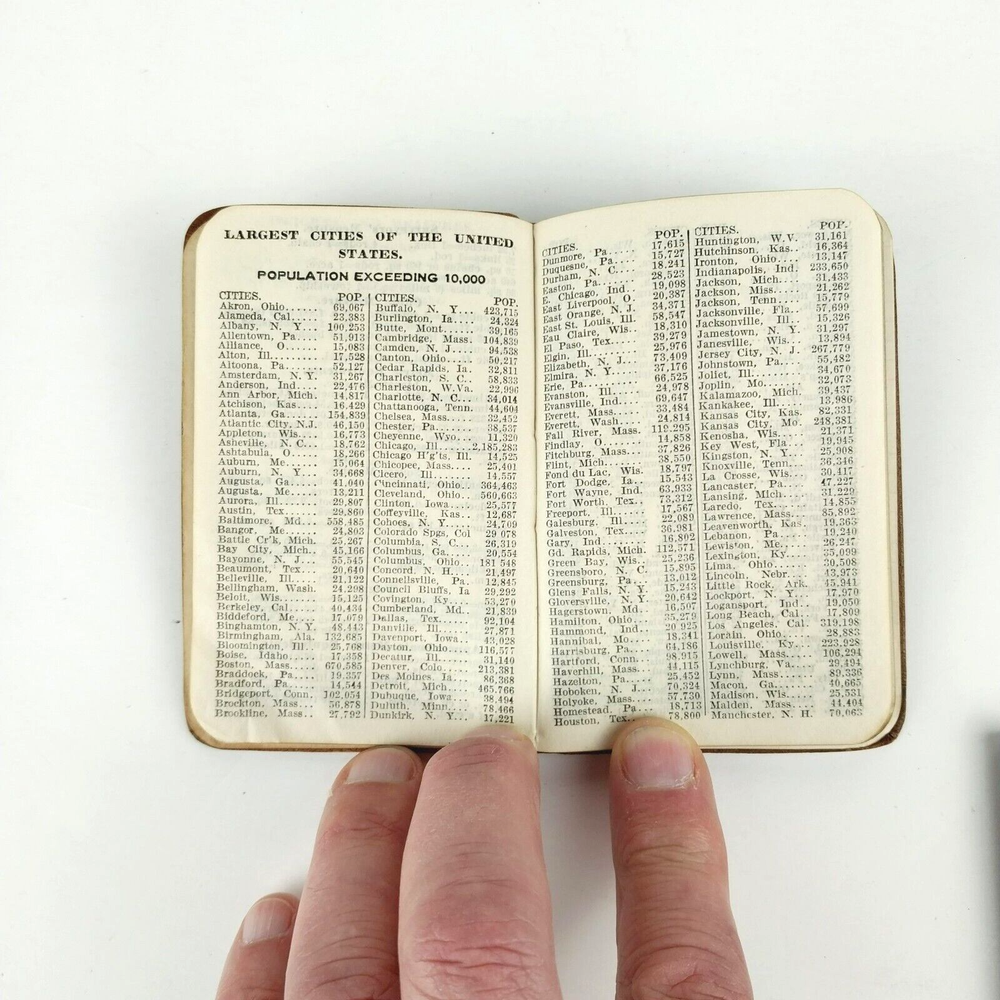 LARGEST CITIES OF THE UNITED
STATES.
POPULATION EXCEEDING 10,000
CITIES. POP.
Akron, Ohio.... 69,067
Alameda, Cal... 23,383
Albany, N. Y... 100,253
Allentown, Pa.. 51,913
Alliance, O.... 15,083
Alton, Ill..... 17,528
Altoona, Pa.... 52,127
Amsterdam, N. Y. 31,267
Anderson, Ind.. 22,476
Ann Arbor, Mich. 14,817
Atchison, Kas.. 16,429
Atlanta, Ga.... 154,839
Atlantic City, N.J. 46,150
Appleton, Wis.. 16,773
Asheville, N. C... 18,762
Ashtabula, O... 18,266
Auburn, Me..... 15,064
Auburn, N. Y... 34,668
Augusta, Ga.... 41,040
Augusta, Me.... 13,211
Aurora, Ill.... 29,807
Austin, Tex.... 29,860
Baltimore, Md... 558,485
Bangor, Me..... 24,803
Battle Cr'k, Mich. 25,267
Bay City, Mich.. 45,166
Bayonne, N. J... 55,545
Beaumont, Tex... 20,640
Belleville, Ill... 21,122
Bellingham, Wash. 24,298
Beloit, Wis..... 15,125
Berkeley, Cal... 40,434
Biddeford, Me... 17,079
Binghamton, N. Y. 48,443
Birmingham, Ala. 132,685
Bloomington, Ill. 25,768
Boise, Idaho.... 17,358
Boston, Mass.... 670,585
Braddock, Pa.... 19,357
Bradford, Pa.... 14,544
Bridgeport, Conn. 102,054
Brockton, Mass... 56,878
Brookline, Mass.. 27,792
CITIES. POP.
Buffalo, N. Y... 423,715
Burlington, Ia... 24,324
Butte, Mont..... 39,165
Cambridge, Mass. 104,839
Camden, N. J.... 94,538
Canton, Ohio.... 50,217
Cedar Rapids, Ia. 32,811
Charleston, S. C.. 58,833
Charleston, W.Va. 22,996
Charlotte, N. C... 34,014
Chattanooga, Tenn. 44,604
Chelsea, Mass.... 32,452
Chester, Pa..... 38,537
Cheyenne, Wyo... 11,320
Chicago, Ill.....2,185,283
Chicago H'g'ts, Ill. 14,525
Chicopee, Mass.... 25,401
Cicero, Ill..... 14,557
Cincinnati, Ohio.. 364,463
Cleveland, Ohio.. 560,663
Clinton, Iowa.... 25,577
Coffeyville, Kas.. 12,687
Cohoes, N. Y..... 24,709
Colorado Spgs, Col 29 078
Columbia, S. C... 26,319
Columbus, Ga.... 20,554
Columbus, Ohio.. 181 548
Concord, N. H.... 21,497
Connellsville, Pa. 12,845
Council Bluffs, Ia 29,292
Covington, Ky.... 53,270
Cumberland, Md.. 21,839
Dallas, Tex..... 92,104
Danville, Ill.... 27,871
Davenport, Iowa.. 43,028
Dayton, Ohio.... 116,577
Decatur, Ill.... 31,140
Denver, Colo.... 213,381
Des Moines, Ia... 86,368
Detroit, Mich.... 465,766
Dubuque, Iowa... 38,494
Duluth, Minn.... 78,466
Dunkirk, N. Y.... 17,221
CITIES. POP.
Dunmore, Pa.... 17,615
Duquesne, Pa.... 15,727
Durham, N. C.... 18,241
Easton, Pa...... 28,523
E. Chicago, Ind.. 19,098
East Liverpool, O. 20,387
East Orange, N. J. 34,371
East St. Louis, Ill. 58,547
Eau Claire, Wis.. 18,310
El Paso, Tex.... 39,279
Elgin, Ill...... 25,976
Elizabeth, N. J... 73,409
Elmira, N. Y.... 37,176
Erie, Pa........ 66,525
Evanston, Ill.... 24,978
Evansville, Ind... 69,647
Everett, Mass.... 33,484
Everett, Wash... 24,814
Fall River, Mass. 119,295
Findlay, O...... 14,858
Fitchburg, Mass... 37,826
Flint, Mich..... 38,550
Fond du Lac, Wis. 18,797
Fort Dodge, Ia.. 15,543
Fort Wayne, Ind. 63,933
Fort Worth, Tex.. 73,312
Freeport, Ill.... 17,567
Galesburg, Ill... 22,089
Galveston, Tex... 36,981
Gary, Ind....... 16,802
Gd. Rapids, Mich. 112,571
Green Bay, Wis.. 25,236
Greensboro, N. C 15,895
Greensburg, Pa... 13,012
Glens Falls, N. Y 15,243
Gloversville, N. Y 20,642
Hagerstown, Md.. 16,507
Hamilton, Ohio... 35,279
Hammond, Ind... 20,925
Hannibal, Mo.... 18,341
Harrisburg, Pa... 64,186
Hartford, Conn... 98,915
Haverhill, Mass... 44,115
Hazelton, Pa..... 25,452
Hoboken, N. J.... 70,324
Holyoke, Mass... 57,730
Homestead, Pa... 18,713
Houston, Tex.... 78,800
CITIES. POP.
Huntington, W.V. 31,161
Hutchinson, Kas.. 16,364
Ironton, Ohio.... 13,147
Indianapolis, Ind. 233,650
Jackson, Mich... 31,433
Jackson, Miss.... 21,262
Jackson, Tenn... 15,779
Jacksonville, Fla.. 57,699
Jacksonville, Ill... 15,326
Jamestown, N. Y. 31,297
Janesville, Wis... 13,894
Jersey City, N. J. 267,779
Johnstown, Pa.... 55,482
Joliet, Ill...... 34,670
Joplin, Mo...... 32,073
Kalamazoo, Mich. 39,437
Kankakee, Ill.... 13,986
Kansas City, Kas. 82,331
Kansas City, Mo. 248,381
Kenosha, Wis.... 21,371
Key West, Fla... 19,945
Kingston, N. Y... 25,908
Knoxville, Tenn.. 36,346
La Crosse, Wis... 30,417
Lancaster, Pa.... 47,227
Lansing, Mich... 31,229
Laredo, Tex..... 14,855
Lawrence, Mass.. 85,892
Leavenworth, Kas. 19,363
Lebanon, Pa..... 19,240
Lewiston, Me.... 26,247
Lexington, Ky.... 35,099
Lima, Ohio..... 30,508
Lincoln, Nebr... 43,973
Little Rock, Ark. 45,941
Lockport, N. Y.. 17,970
Logansport, Ind.. 19,050
Long Beach, Cal. 17,809
Los Angeles, Cal. 319,198
Lorain, Ohio.... 28,883
Louisville, Ky... 223,928
Lowell, Mass.... 106,294
Lynchburg, Va... 29,494
Lynn, Mass..... 89,336
Macon, Ga...... 40,665
Madison, Wis.... 25,531
Malden, Mass.... 44,404
Manchester, N. H. 70,063